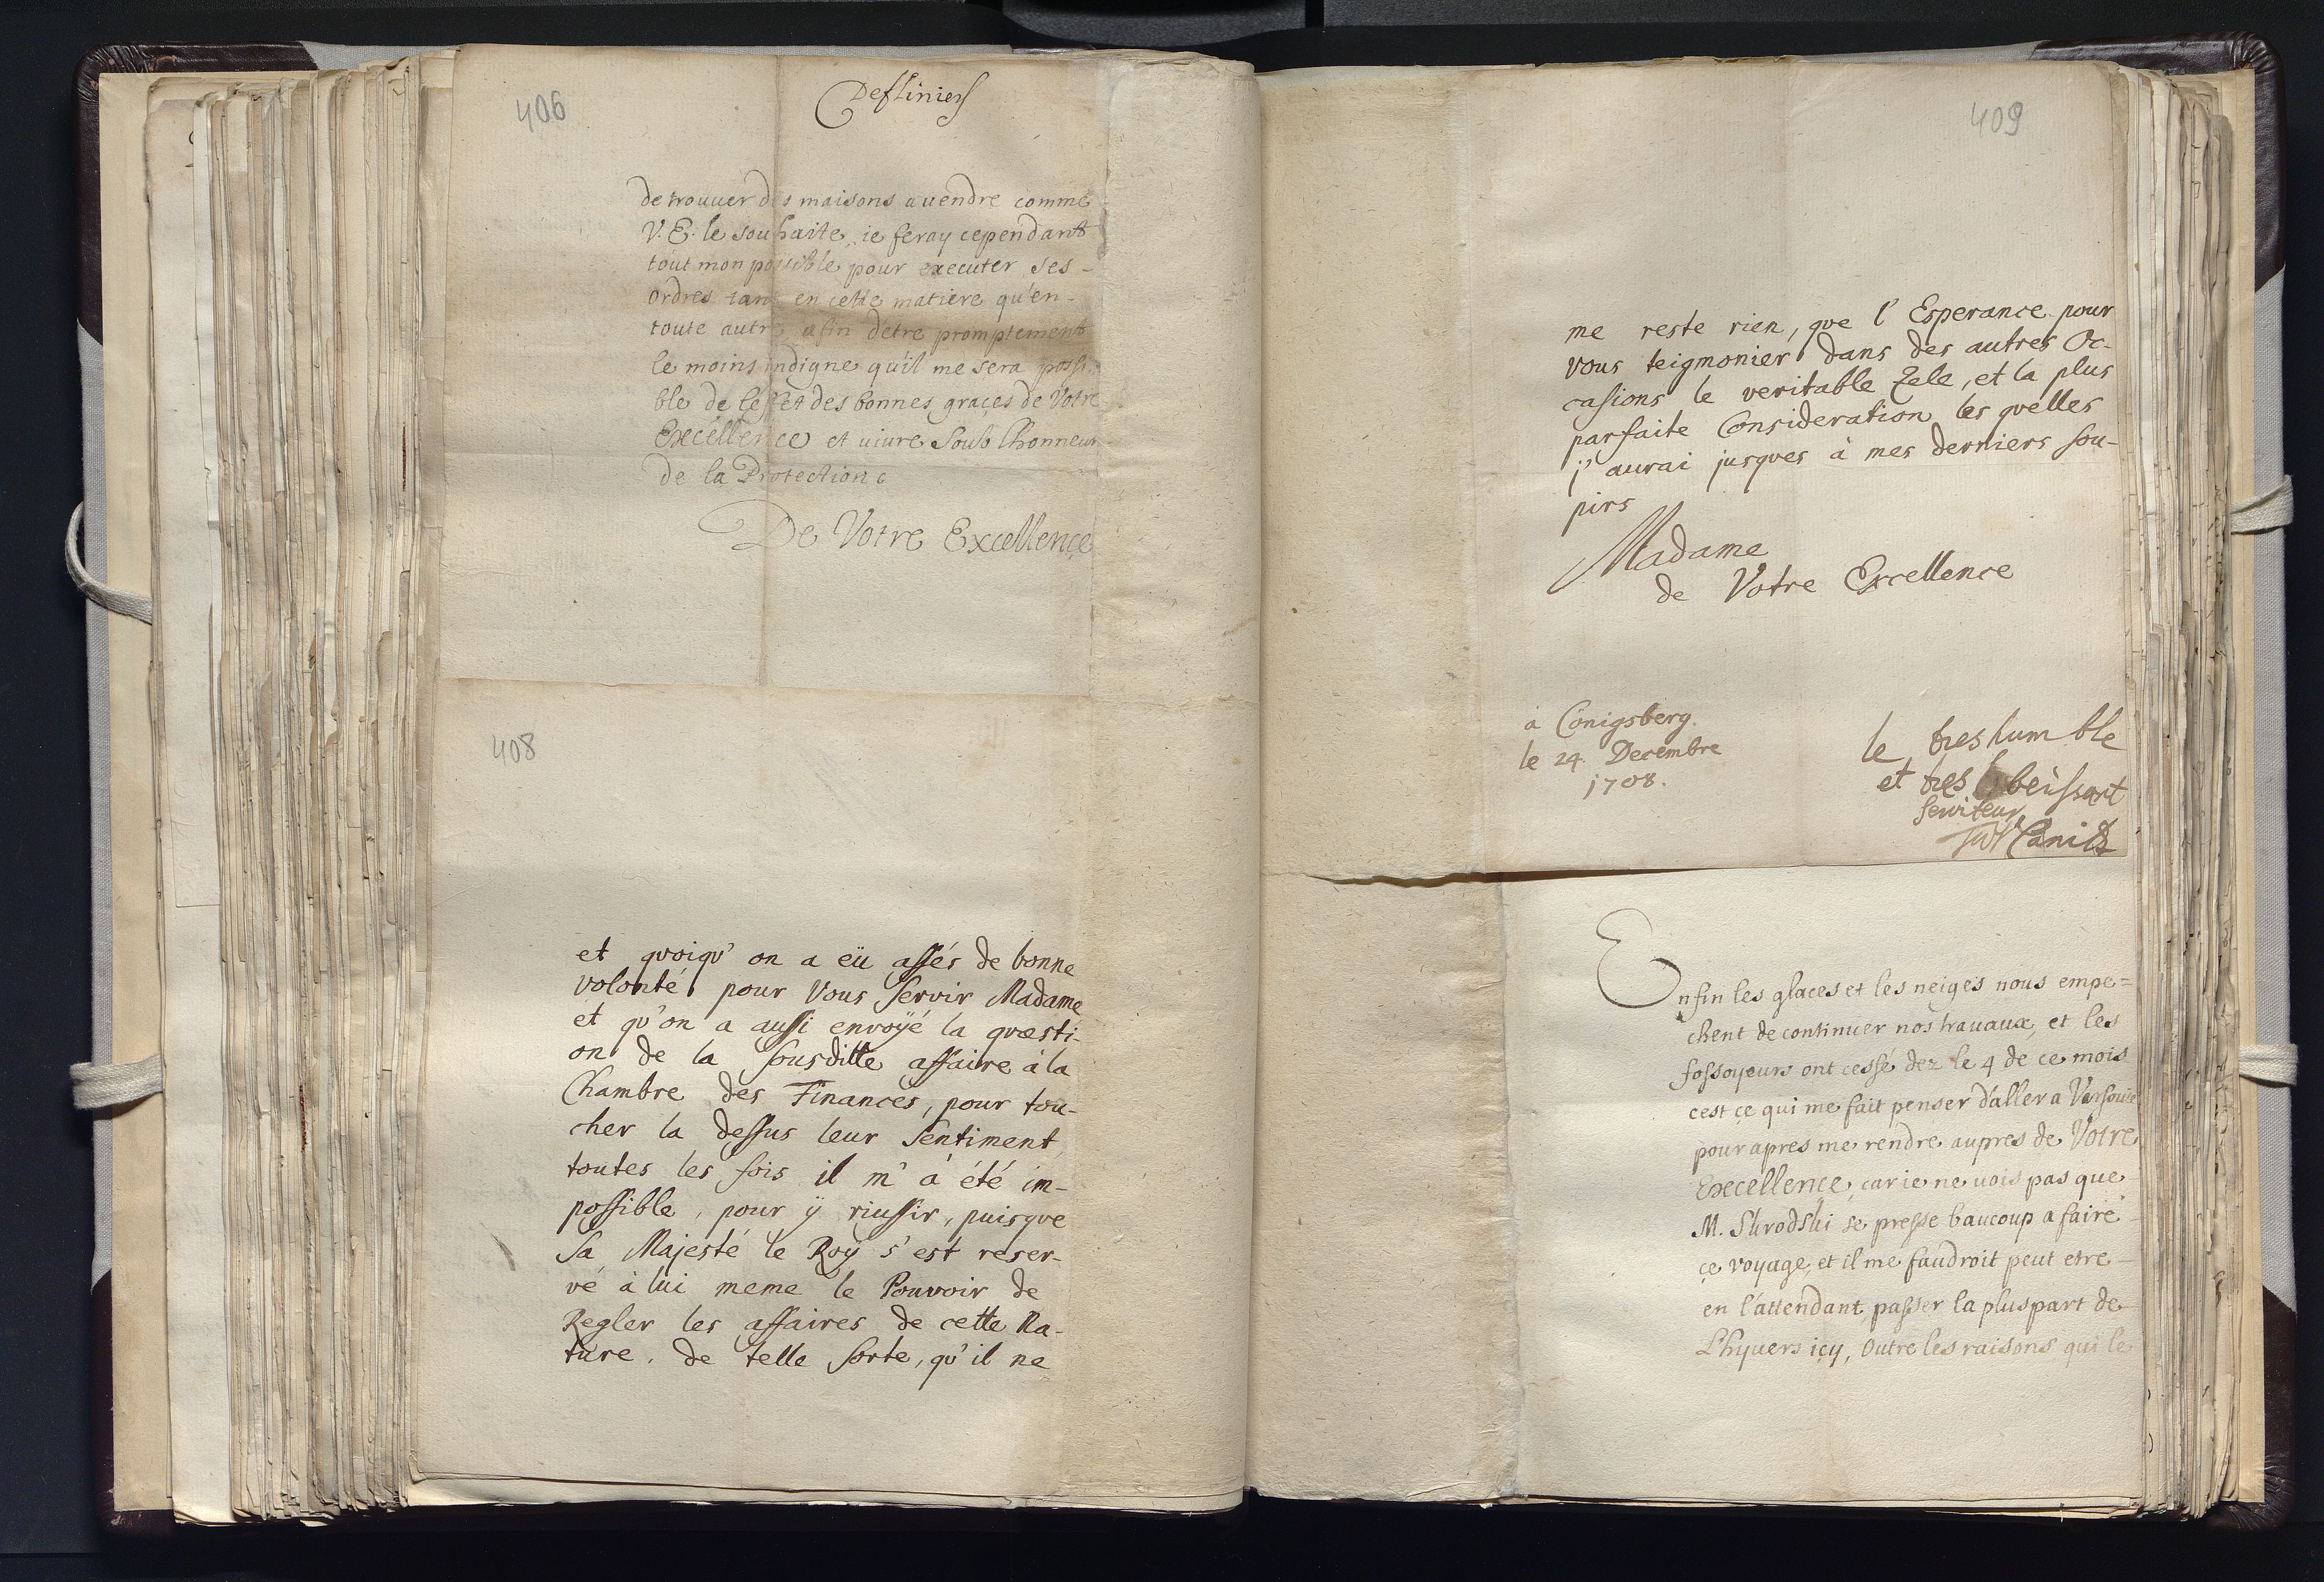 406
de trouver des maisons a vendre comme
V. E. le souhaite, ie feray cependant
tout mon possible pour executer ses
ordres tant en cette matiere qu'en
toute autre afin detre promptement
le moins indigne qu'il me sera possi-
ble de leffet des bonnes graces de Votre
Excellence et uiure soub lhonneur
de la Protection
De Votre Excellence
408
et qvoiqv' on a eü assés de bonne
volonté pour Vous servir Madame
et qv'on a aussi envoÿé la qvæsti-
on de la sousditte affaire à la
Chambre des Finances, pour tou-
cher la dessus leur sentiment
toutes les fois il m' à été im-
possible, pour ÿ riussir, puisqve
Sa Majesté le Roÿ s' est reser-
vé à lui meme le Pouvoir de
Regler les affaires de cette Na-
ture. de telle sorte, qv' il ne
409
me reste rien, qve l' Esperance pour
vous teigmonier dans des autres Oc-
casions le veritable Zele, et la plus
parfaite Consideration les qvelles
j' aurai jusqves à mes derniers sou-
pirs
Madame
de Votre Excellence
à Cönigsberg.
le 24. Decembre
1708.
le treshumble
et tres obeissant
serviteur
Canitz
Enfin les glaces et les neiges nous empe=
chent de continuer nos trauaux, et les
fossoyeurs ont cessé dez le 4 de ce mois
cest ce qui me fait penser d'aller a Varsouie
pour apres me rendre aupres de Votre
Excellence, car ie ne uois pas que
M. Skrodski se presse baucoup a faire
ce voyage, et il me faudroit peut etre
en l'attendant, passer la pluspart de
L'hyuers icy, outre les raisons qui le